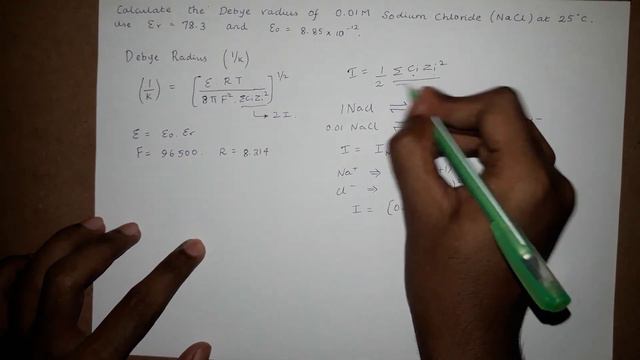 Calculate the Debye radius of 0.01M Sodium Chloride (NaCl) at 25°C.
use εr = 78.3 and ε0 = 8.85 x 10⁻¹².
Debye Radius (1/k)
(1/k) = [ε R T / 8πF² . Σcizi²]^1/2
→ 2I.
ε = ε0. εr
F = 96500. R = 8.314
I = 1/2 Σ ci zi²
1 NaCl ⇌
0.01 NaCl ⇌
I =
Na⁺ ⇒
Cl⁻ ⇒
I =